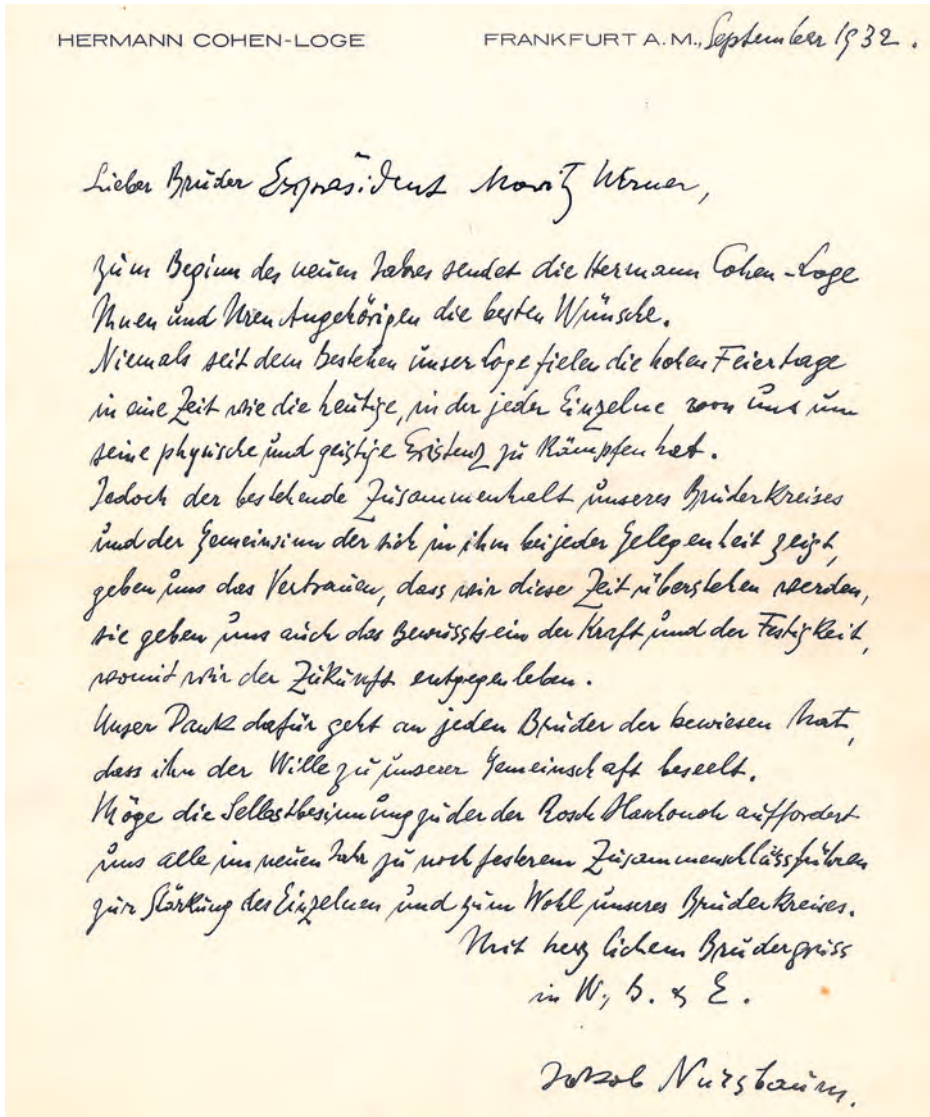 HERMANN COHEN-LOGE FRANKFURT A.M., September 1932.
Lieber Bruder Expräsident Moritz Werner,
zum Beginn des neuen Jahres sendet die Hermann Cohen-Loge
Ihnen und Ihren Angehörigen die besten Wünsche.
Niemals seit dem Bestehen unser Loge fielen die hohen Feiertage
in eine Zeit wie die heutige, in der jeder Einzelne von uns um
seine physische und geistige Existenz zu kämpfen hat.
Jedoch der bestehende Zusammenhalt unseres Bruderkreises
und der Gemeinsinn der sich in ihm bei jeder Gelegenheit zeigt,
geben uns das Vertrauen, dass wir diese Zeit überstehen werden,
sie geben uns auch das Bewusstsein der Kraft und der Festigkeit,
womit wir der Zukunft entgegenleben.
Unser Dank dafür geht an jeden Bruder der bewiesen hat,
dass ihn der Wille zu unserer Gemeinschaft beseelt.
Möge die Selbstbesinnung zu der der Rosch Haschonoh auffordert
uns alle im neuen Jahr zu noch festerem Zusammenschluss führen
zur Stärkung des Einzelnen und zum Wohl unseres Bruderkreises.
Mit herzlichem Brudergruss
in W., B. & E.
Jakob Nussbaum.